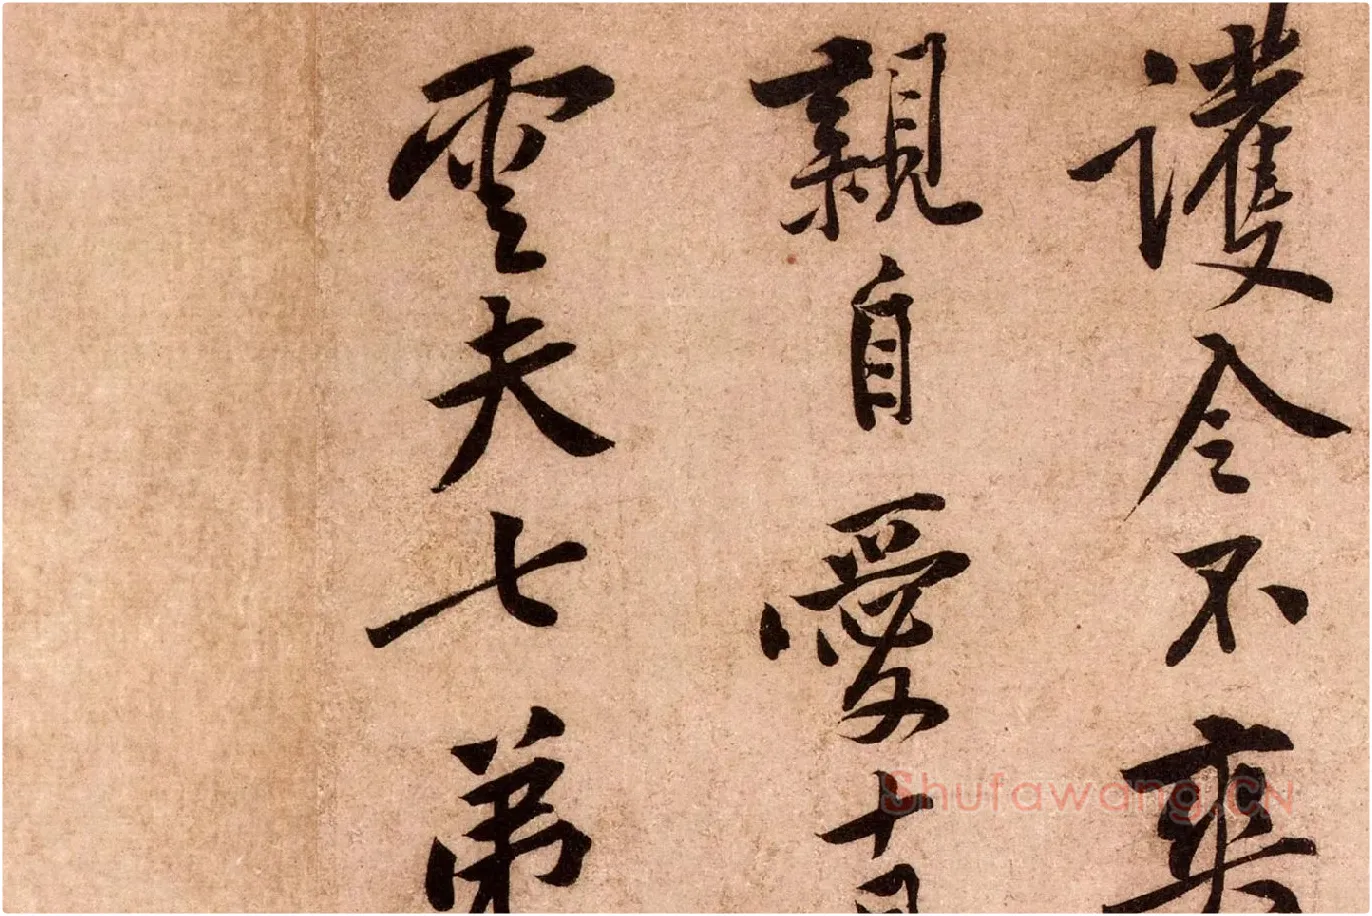 護令不
親自愛十
雲夫七弟
Shufawang.CN